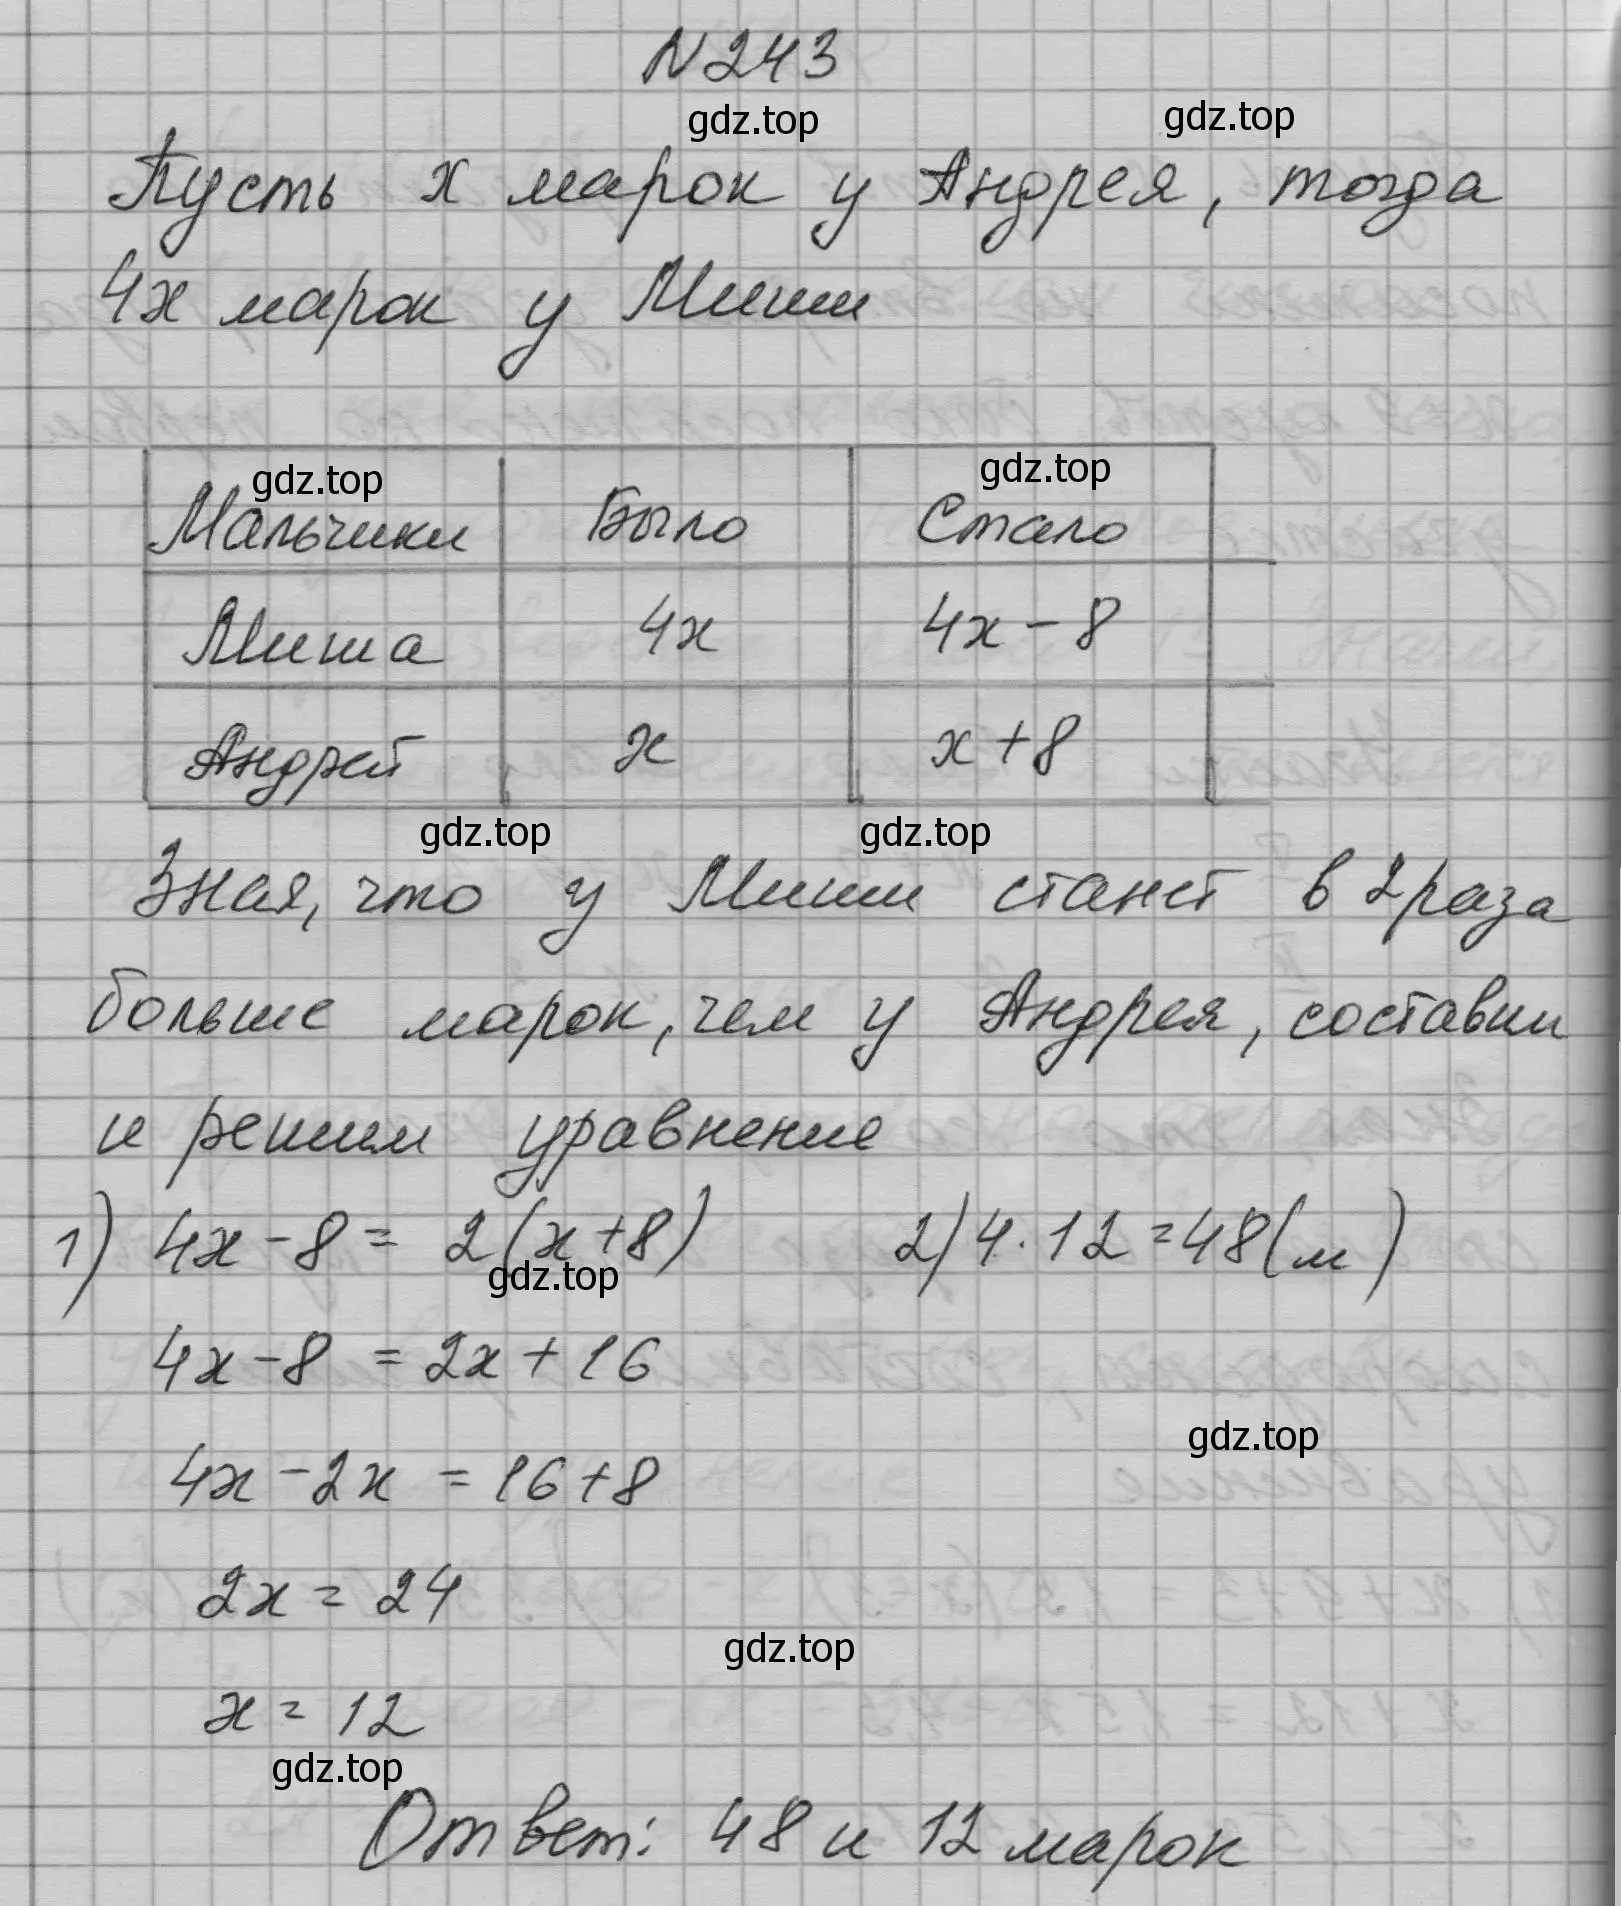 N243
gdz.top gdz.top
Пусть x марок у Андрея, тогда
4x марок у Миши
gdz.top gdz.top
Мальчики Было Стало
Миша 4x 4x - 8
Андрей x x + 8
gdz.top gdz.top
Зная, что у Миши станет в 2 раза
больше марок, чем у Андрея, составим
и решим уравнение
1) 4x - 8 = 2(x + 8) 2) 4 · 12 = 48 (м)
gdz.top
4x - 8 = 2x + 16
gdz.top
4x - 2x = 16 + 8
2x = 24
gdz.top
x = 12
gdz.top
Ответ: 48 и 12 марок